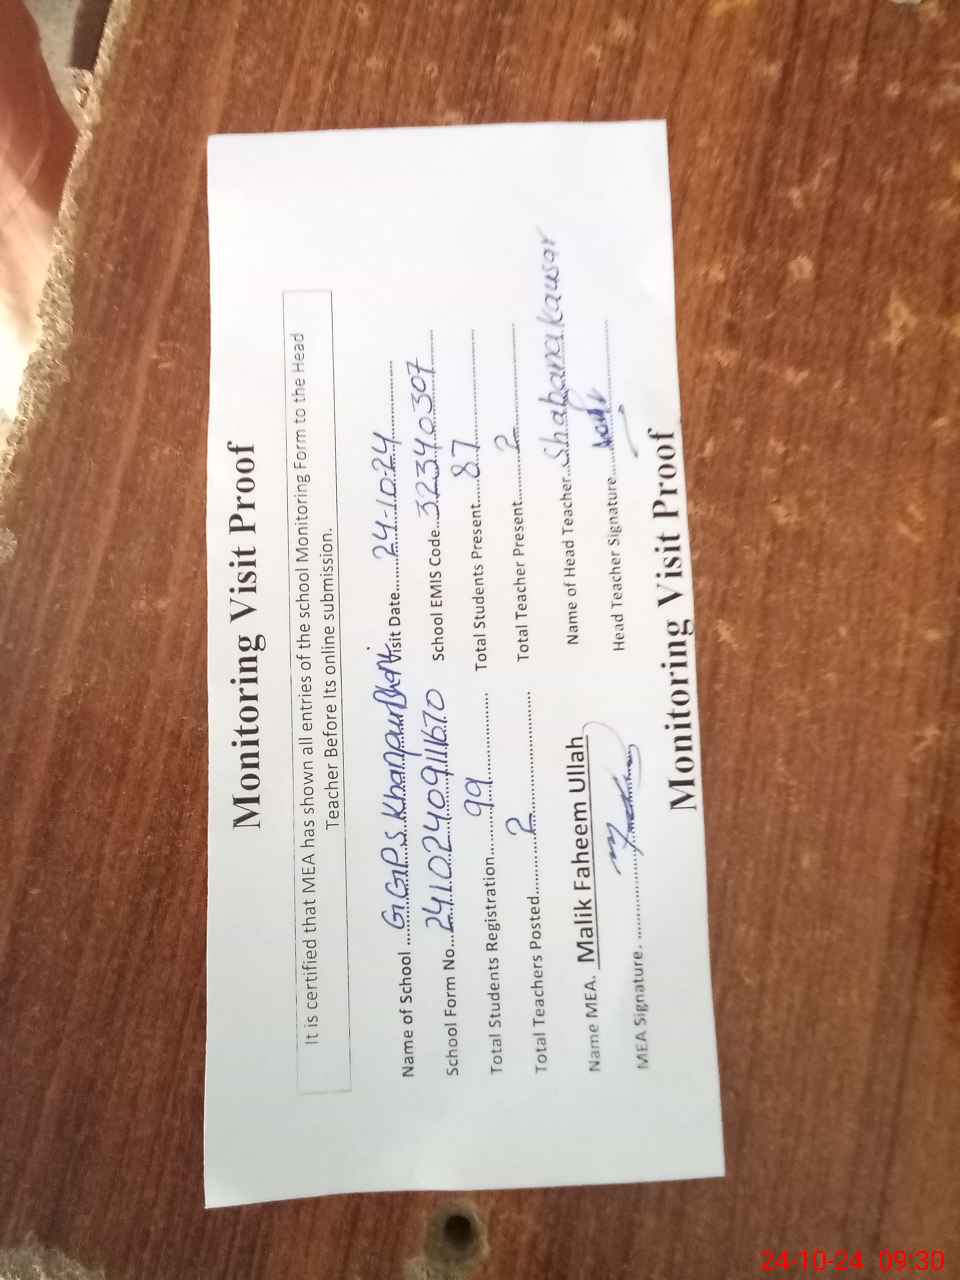 Monitoring Visit Proof
It is certified that MEA has shown all entries of the school Monitoring Form to the Head
Teacher Before Its online submission.
Name of School ....GGPS Khanpur Bhatti Visit Date.....24-10-24
School Form No...2410240911670 School EMIS Code...32340307
Total Students Registration.....99 Total Students Present.....87
Total Teachers Posted.....2 Total Teacher Present.....2
Name MEA. Malik Faheem Ullah Name of Head Teacher...Shabana kausar
MEA Signature. ..... Head Teacher Signature.....
Monitoring Visit Proof
24-10-24 09:30